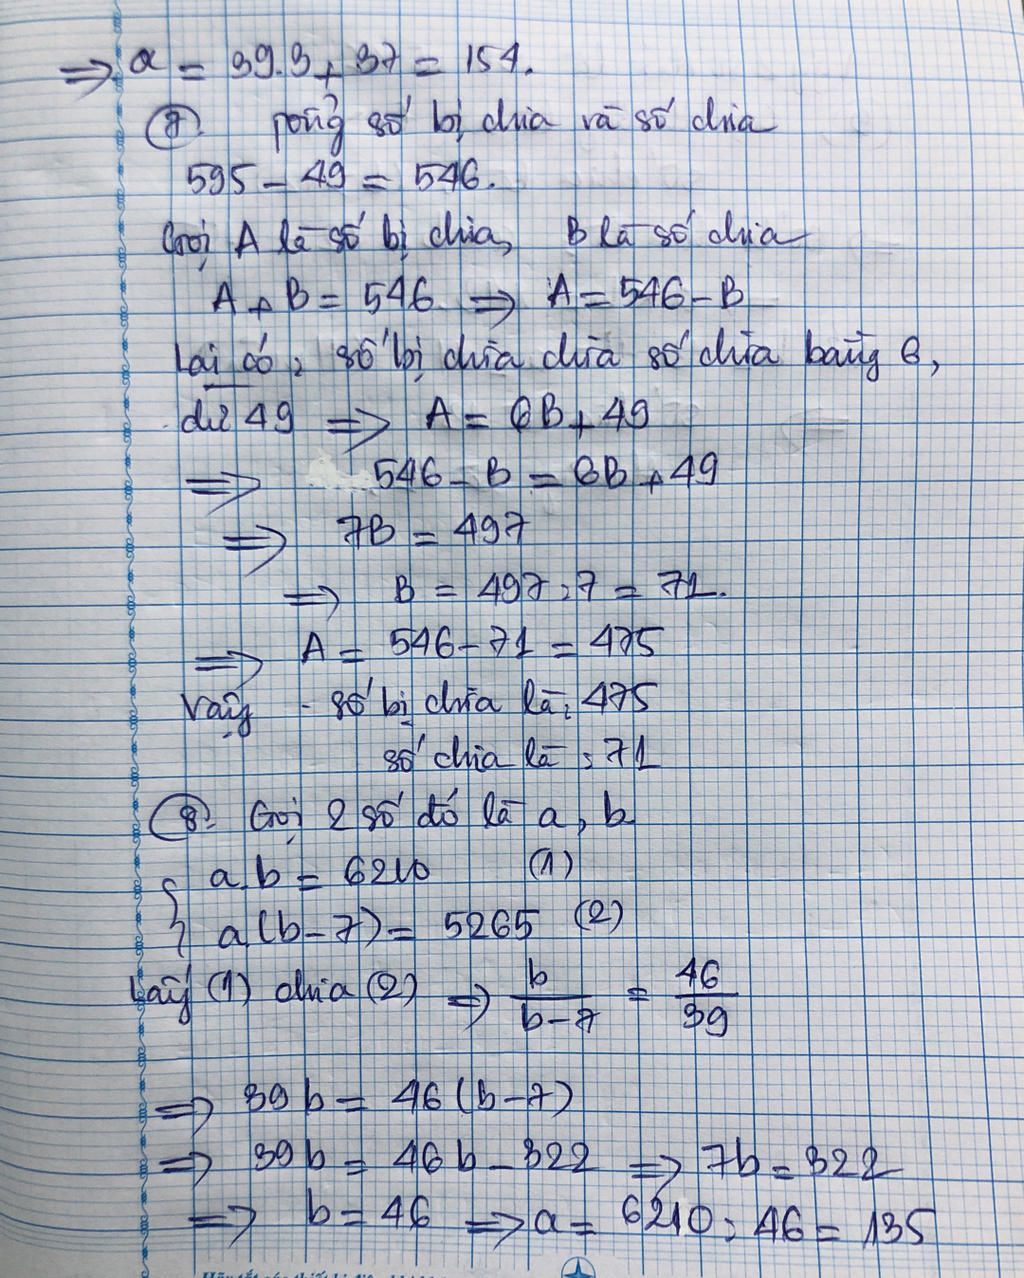 ⇒ a = 39.3 + 37 = 154.
7. Tổng số bị chia và số chia
595 - 49 = 546.
Gọi A là số bị chia, B là số chia
A + B = 546 ⇒ A = 546 - B
Lại có, số bị chia chia số chia bằng 6,
dư 49 ⇒ A = 6B + 49
⇒ 546 - B = 6B + 49
⇒ 7B = 497
⇒ B = 497 : 7 = 71.
⇒ A = 546 - 71 = 475
Vậy - số bị chia là: 475
số chia là : 71
8. Gọi 2 số đó là a, b
{ a.b = 6210 (1)
a(b-7) = 5265 (2)
Lấy (1) chia (2) ⇒ b/(b-7) = 46/39
⇒ 39b = 46(b-7)
⇒ 39b = 46b - 322 ⇒ 7b = 322
⇒ b = 46 ⇒ a = 6210 : 46 = 135